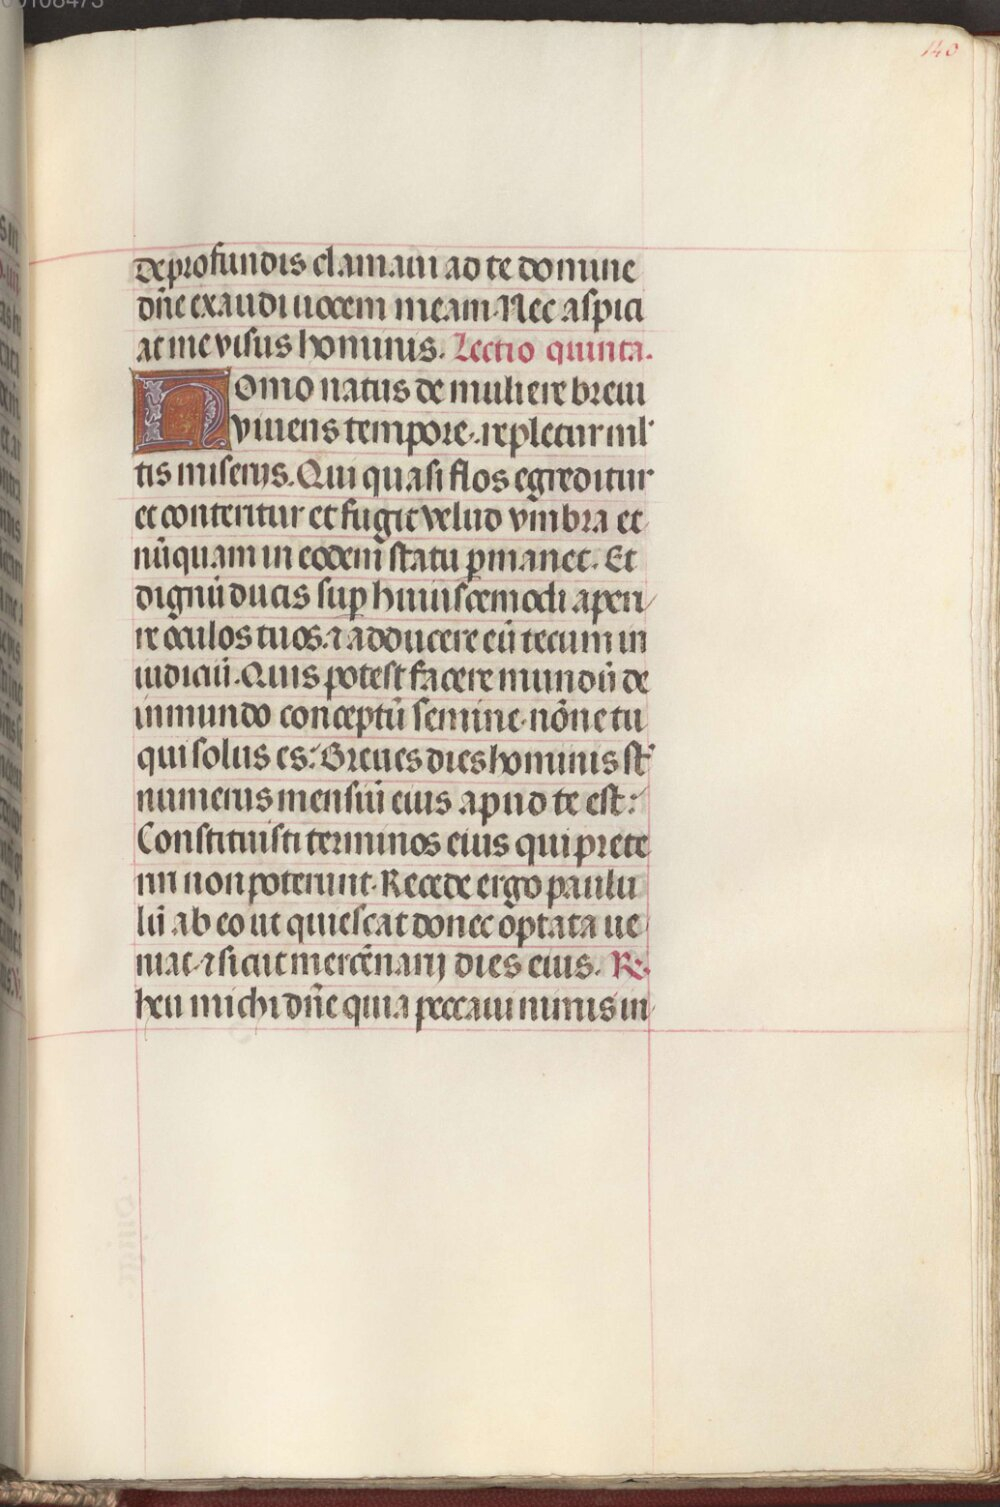 00108473
140
De profundis clamaui ad te domine
dn̄e exaudi uocem meam. Nec aspici
at me visus hominis. Lectio quinta.
Homo natus de muliere breui
viuens tempore. repletur mul
tis miserijs. Qui quasi flos egreditur
et conteritur et fugit velud vmbra et
nūquam in eodem statu ꝑmanet. Et
dignū ducis suꝑ huiuscemodi aperi
re oculos tuos. ⁊ adducere eū tecum in
iudiciū. Quis potest facere mundū de
inmundo conceptū semine. nōne tu
qui solus es. Breues dies hominis st̄
numerus mensiū eius apud te est.
Constituisti terminos eius qui prete
riri non poterunt. Recede ergo paulu
lū ab eo ut quiescat donec optata ue
niat. ⁊ sicut mercēnarij dies eius. R.
heu michi dn̄e quia peccaui nimis in